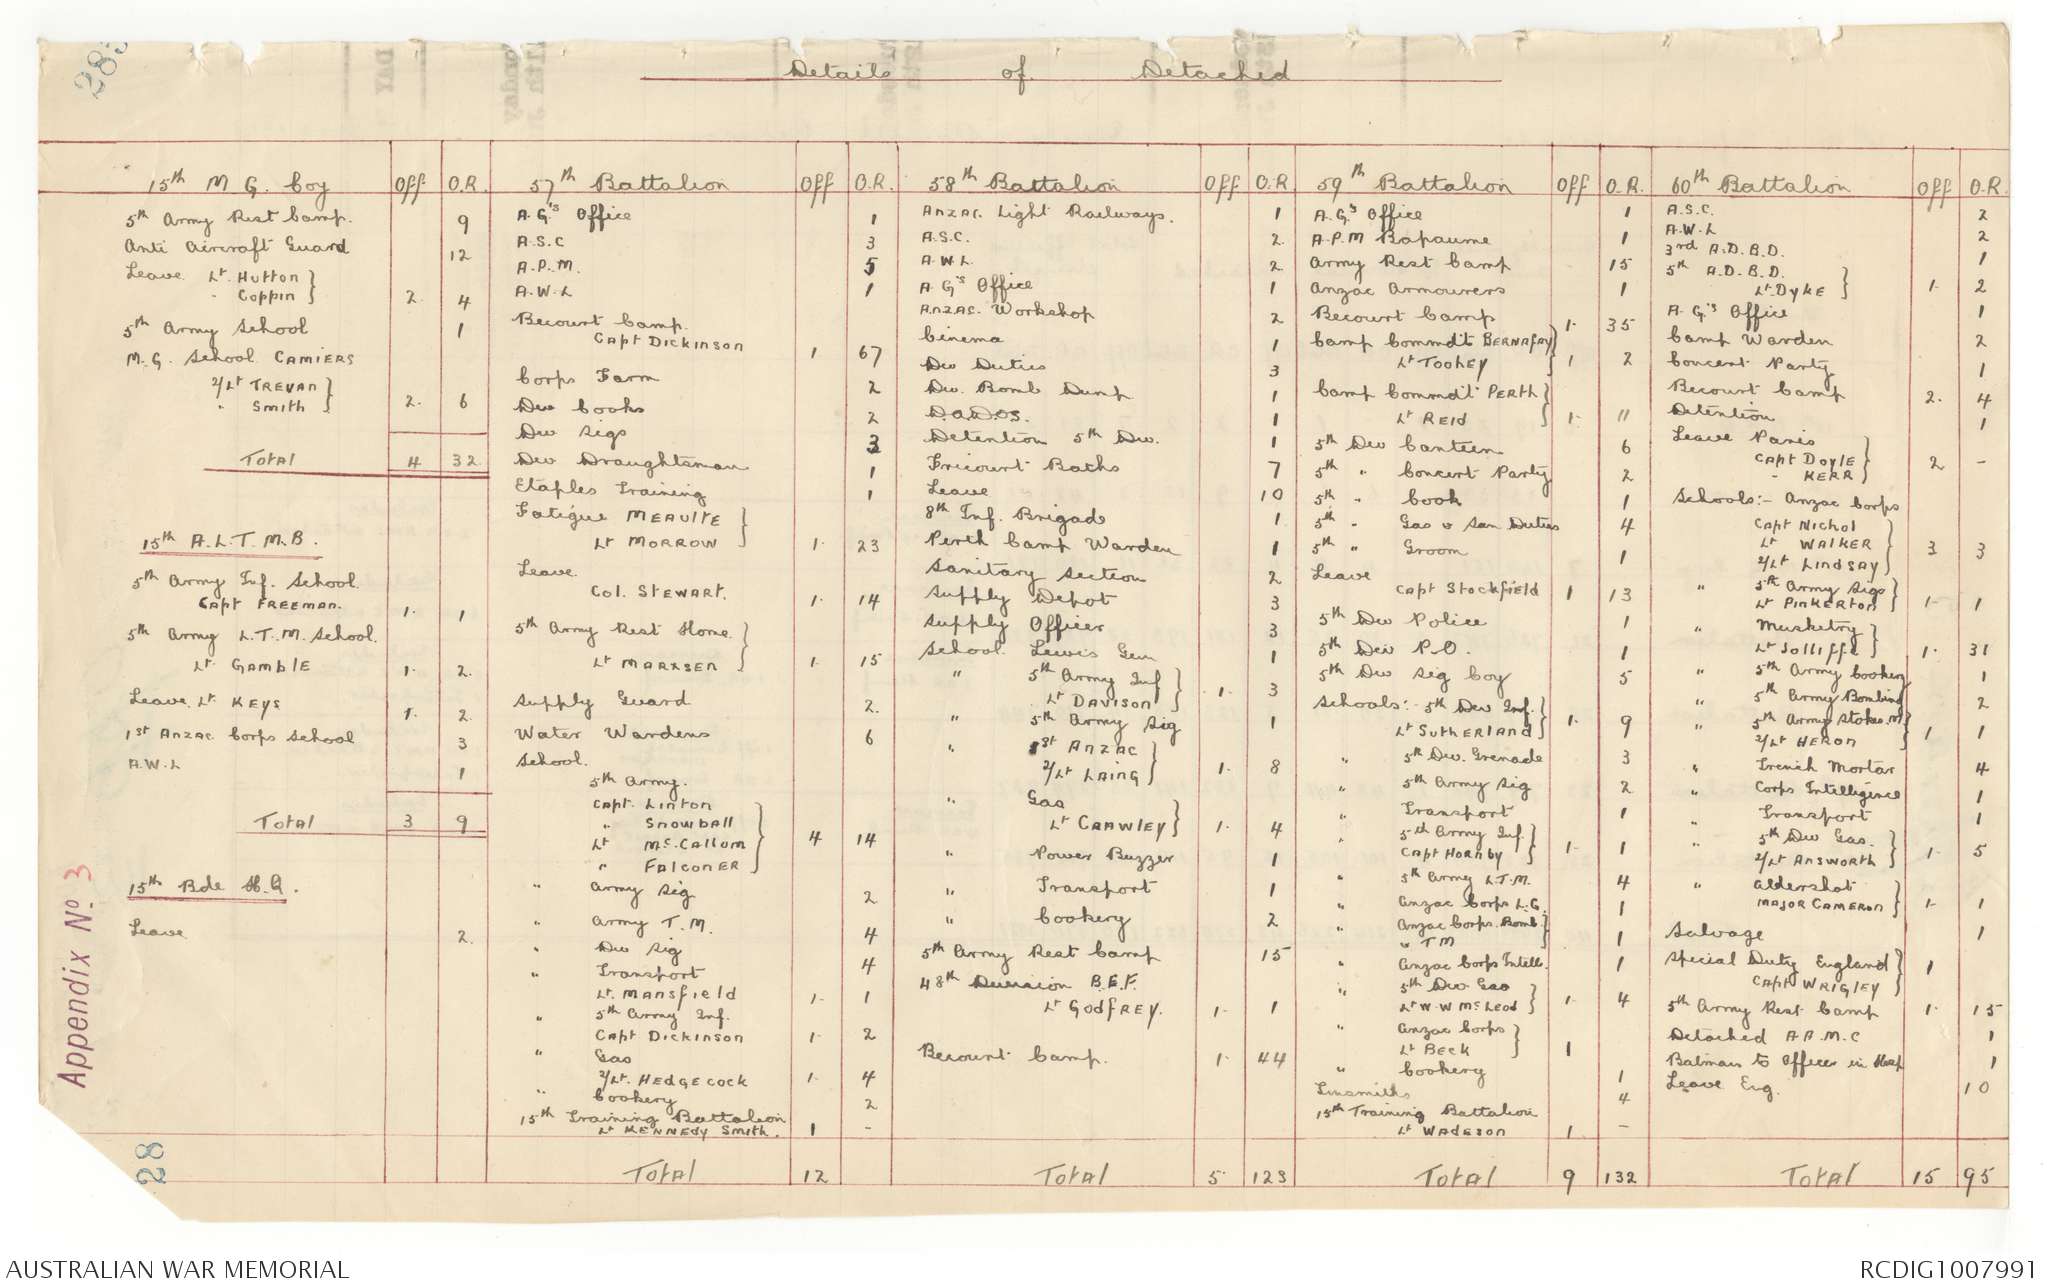 283
Details of Detached
15th M G. Coy Off. O.R.
5th Army Rest Camp. 9
Anti Aircraft Guard 12
Leave Lt. Hutton }
" Coppin } 2. 4
5th Army School 1
M.G. School CAMIERS
2/Lt TREVAN }
" Smith } 2. 6
Total 4 32
15th A.L.T.M.B.
5th Army Inf. School.
CAPT FREEMAN. 1. 1
5th Army L.T.M. School.
Lt. GAMBLE 1. 2.
Leave. Lt KEYS 1. 2.
1st Anzac Corps School 3
A.W.L 1
Total 3 9
15th Bde H.Q.
Leave 2.
57th Battalion Off O.R.
A.G's Office 1
A.S.C 3
A.P.M. 5
A.W.L 1
Becourt Camp.
Capt DICKINSON 1 67
Corps Farm 2
Div Cooks 2
Div Sigs 3
Div Draughtsman 1
Etaples Training 1
Fatigue MEAULTE }
Lt MORROW } 1. 23
Leave.
Col. STEWART. 1. 14
5th Army Rest Home. }
Lt MARXSEN } 1. 15
Supply Guard 2.
Water Wardens 6
School.
5th Army.
CAPT. LINTON }
" SNOWBALL }
Lt Mc.CALLUM } 4 14
" FALCONER }
" Army Sig 2
" Army T.M. 4
" Div Sig 4
" Transport
Lt. MANSFIELD 1. 1
" 5th Army Inf.
CAPT DICKINSON 1. 2
" Gas
2/Lt. HEDGECOCK 1. 4
" Cookery 2
15th Training Battalion
Lt KENNEDY SMITH. 1 -
Total 12
58th Battalion Off O.R
Anzac Light Railways. 1
A.S.C. 2.
A.W.L. 2
A.G's Office 1
Anzac Workshop 2
Cinema 1
Div Duties 3
Div. Bomb Dump 1
D.A.D.O.S. 1
Detention 5th Div. 1
Fricourt Baths 7
Leave 10
8th Inf. Brigade 1
Perth Camp Warden 1
Sanitary Section 2
Supply Depot 3
Supply Officer 3
School Lewis Gun 1
" 5th Army Inf }
Lt DAVISON } 1. 3
" 5th Army Sig 1
" 1st ANZAC }
2/Lt LAING } 1. 8
" Gas }
Lt CRAWLEY } 1. 4
" Power Buzzer 1
" Transport 1
" Cookery 2
5th Army Rest Camp 15
48th Division B.E.F.
Lt GODFREY. 1. 1
Becourt Camp. 1. 44
Total 5 123
59th Battalion Off O.R.
A.G's Office 1
A.P.M Bapaume 1
Army Rest Camp 15
Anzac Armourers 1
Becourt Camp 1. 35
Camp Commd't BERNAFAY }
Lt TOOHEY } 1 2
Camp Commd't PERTH }
Lt REID } 1. 11
5th Div Canteen 6
5th " Concert Party 2
5th " Cook 1
5th " Gas & San Duties 4
5th " Groom 1
Leave
CAPT STOCKFIELD 1 13
5th Div Police 1
5th Div P.O. 1
5th Div Sig Coy 5
Schools:- 5th Div Inf. }
Lt SUTHERLAND } 1. 9
" 5th Div. Grenade 3
" 5th Army Sig 2
" Transport 1
" 5th Army Inf. }
CAPT HORNBY } 1. 1
" 5th Army L.T.M. 4
" Anzac Corps L.G. 1
" Anzac Corps. Bomb. }
" " TM } 1
" Anzac Corps Intell. 1
" 5th Div Gas }
Lt W.W McLeod } 1. 4
" Anzac Corps }
Lt BECK } 1
" Cookery 1
Tinsmiths 4
15th Training Battalion
Lt WADESON 1. -
Total 9 132
60th Battalion Off O.R.
A.S.C. 2
A.W.L 2
3rd A.D.B.D. 1
5th A.D.B.D. }
Lt. DYKE } 1. 2
A.G's Office 1
Camp Warden 2
Concert Party 1
Becourt Camp 2. 4
Detention 1
Leave Paris }
CAPT DOYLE } 2 -
" KERR }
Schools:- Anzac Corps
CAPT NICHOL }
Lt WALKER } 3 3
2/Lt LINDSAY }
" 5th Army Sigs }
Lt PINKERTON } 1. 1
" Musketry }
Lt JOLLIFFE } 1. 31
" 5th Army Cookery 1
" 5th Army Bombing 2
" 5th Army Stokes.M. }
2/Lt HERON } 1 1
" Trench Mortar 4
" Corps Intelligence 1
" Transport 1
" 5th Div Gas. }
2/Lt ANSWORTH } 1. 5
" Aldershot }
MAJOR CAMERON } 1. 1
Salvage 1
Special Duty England }
CAPT WRIGLEY } 1
5th Army Rest Camp 1. 15
Detached A A.M.C 1
Batman to Officer in Hosp 1
Leave Eng. 10
Total 15 95
Appendix No. 3
28
AUSTRALIAN WAR MEMORIAL
RCDIG1007991